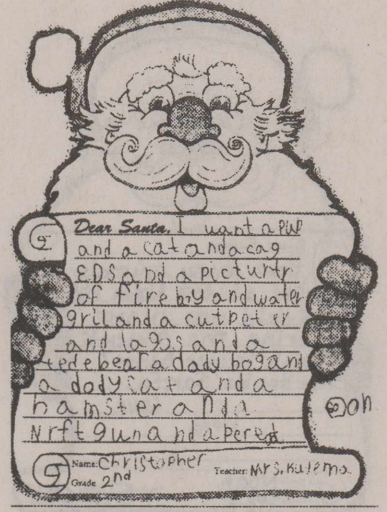 Dear Santa, I want a
and a cat and a cag
EDS and a picturtr
of fire boy and water
gril and a cutpet er
and lagos and a
tedebear a dady bog and
a dody cat and a
hamster anda
Nrft gun and a peret
Name: Christopher
Grade 2nd
Teacher: Mrs.